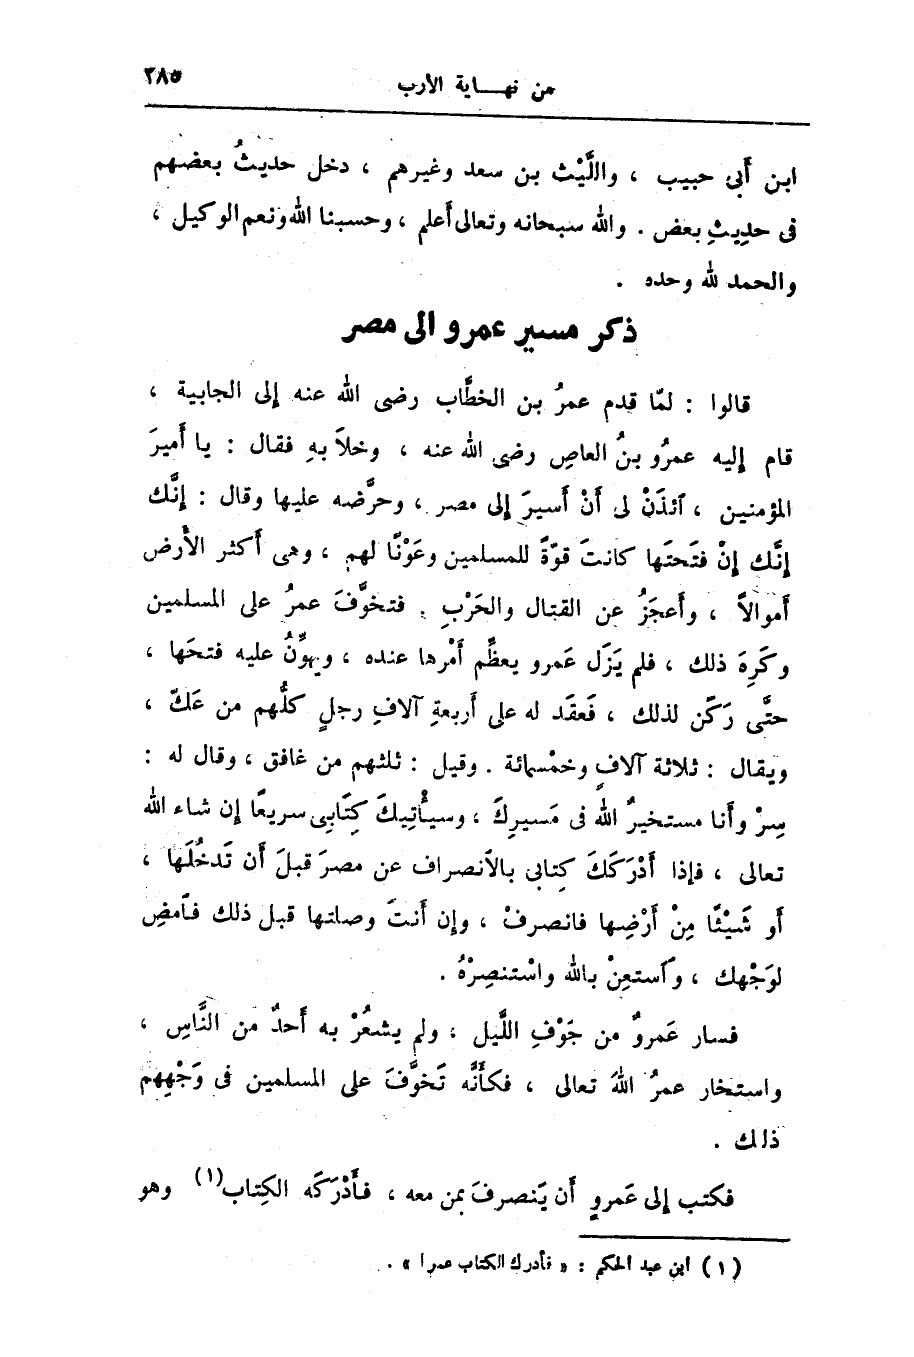 من نهـاية الأرب ٢٨٥
ابن أَبى حبيب ، واللَّيْث بن سعد وغيرهم ، دخل حديثُ بعضهم
فى حديثِ بعض . والله سبحانه وتعالى أعلم ، وحسبنا الله ونعم الوكيل ،
والحمد لله وحده .
ذكر مسير عمرو الى مصر
قالوا : لمّا قدم عمرُ بن الخطَّاب رضى الله عنه إلى الجابية ،
قام إليه عمرُو بنُ العاصِ رضى الله عنه ، وخلاَ بهِ فقال : يا أَميرَ
المؤمنين ، ٱئذَنْ لى أَنْ أَسيرَ إلى مصر ، وحرَّضه عليها وقال : إنَّك
إنَّك إنْ فتَحتَها كانتَ قوّةً للمسلمين وعَوْنًا لهم ، وهى أَكثر الأَرض
أَموالاً ، وأَعجَزُ عن القتال والحَرْبِ . فتخوَّفَ عمرُ على المسلمين
وكَرِهَ ذلك ، فلم يَزَل عَمرو يعظِّم أَمْرها عنده ، ويهوِّنُ عليه فتحَها ،
حتَّى رَكَن لذلك ، فَعقَد له على أَربعةِ آلافِ رجلٍ كلُّهم من عَكّ ،
ويقال : ثلاثة آلافٍ وخمْسمائة . وقيل : ثلثهم من غافق ، وقال له :
سِرْ وأَنا مستخيرٌ الله فى مَسيرِكَ ، وسيأْتِيكَ كِتَابِى سريعًا إن شاء الله
تعالى ، فإذا أَدْرَكَكَ كِتابى بالٱنصراف عن مصرَ قبلَ أَن تَدخُلَها ،
أَو شَيْئًا مِنْ أَرْضِها فانصرفْ ، وإن أَنتَ وصلتها قبل ذلك فٱمضِ
لوَجْهك ، وٱستعِنْ بالله واسْتنصِرْهُ .
فسار عَمروٌ من جَوْفِ اللَّيل ، ولم يشعُرْ به أَحدٌ من النَّاسِ ،
واستخار عمرُ اللهَ تعالى ، فكأَنَّه تَخوَّفَ على المسلمين فى وَجْهِهم
ذلك .
فكتب إلى عَمرٍو أَن يَنصرفَ بمن معه ، فأَدْرَكَه الكِتاب(١) وهو
(١) ابن عبد الحكم : « فأدرك الكتاب عمرا » .